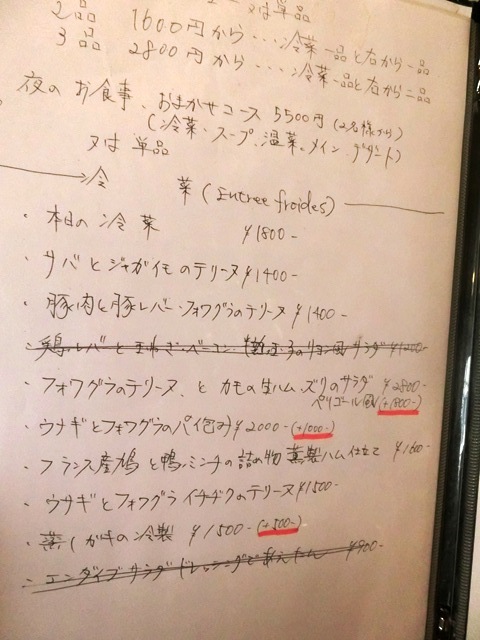 又は単品
2品 1600円から・・・・冷菜一品と右から一品
3品 2800円から・・・・冷菜一品と右から二品
夜のお食事、おまかせコース 5500円(2名様から)
(冷菜、スープ、温菜、メイン、デザート)
又は 単品
冷 菜(Entree froides)
・本日の冷菜 ¥1800-
・サバとジャガイモのテリーヌ ¥1400-
・豚肉と豚レバー・フォワグラのテリーヌ ¥1400-
・鶏レバーと玉ねぎ・ベーコン・ のリヨン風サラダ ¥1200-
・フォワグラのテリーヌ、と カモの生ハム、ズリのサラダ ¥2800-
ペリゴール風(+1800-)
・ウナギとフォワグラのパイ包み ¥2000-(+1000-)
・フランス産鳩と鴨ミンチの詰め物 薫製ハム仕立て ¥1600-
・ウサギとフォワグラ イチヂクのテリーヌ ¥1500-
・蒸しガキの冷製 ¥1500-(+500-)
・エンダイブサラダ ドレッシングであえたん ¥900-